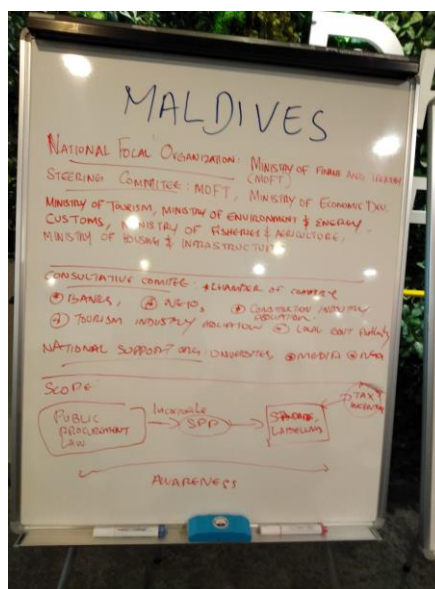 MALDIVES
NATIONAL FOCAL ORGANIZATION: MINISTRY OF FINANCE AND TREASURY
(MOFT)
STEERING COMMITTEE: MOFT, MINISTRY OF ECONOMIC DEV.
MINISTRY OF TOURISM, MINISTRY OF ENVIRONMENT & ENERGY,
CUSTOMS, MINISTRY OF FISHERIES & AGRICULTURE,
MINISTRY OF HOUSING & INFRASTRUCTURE
CONSULTATIVE COMITEE: CHAMBER OF COMMERCE
BANKS, NGO, CONSTRUCTION INDUSTRY
TOURISM INDUSTRY LOCAL GOVT AUTHORITY
NATIONAL SUPPORT ORG: UNIVERSITIES MEDIA NGO
SCOPE
PUBLIC PROCUREMENT LAW
INCORPORATE
SPP
STANDARDS, LABELLING
TAX
AWARENESS